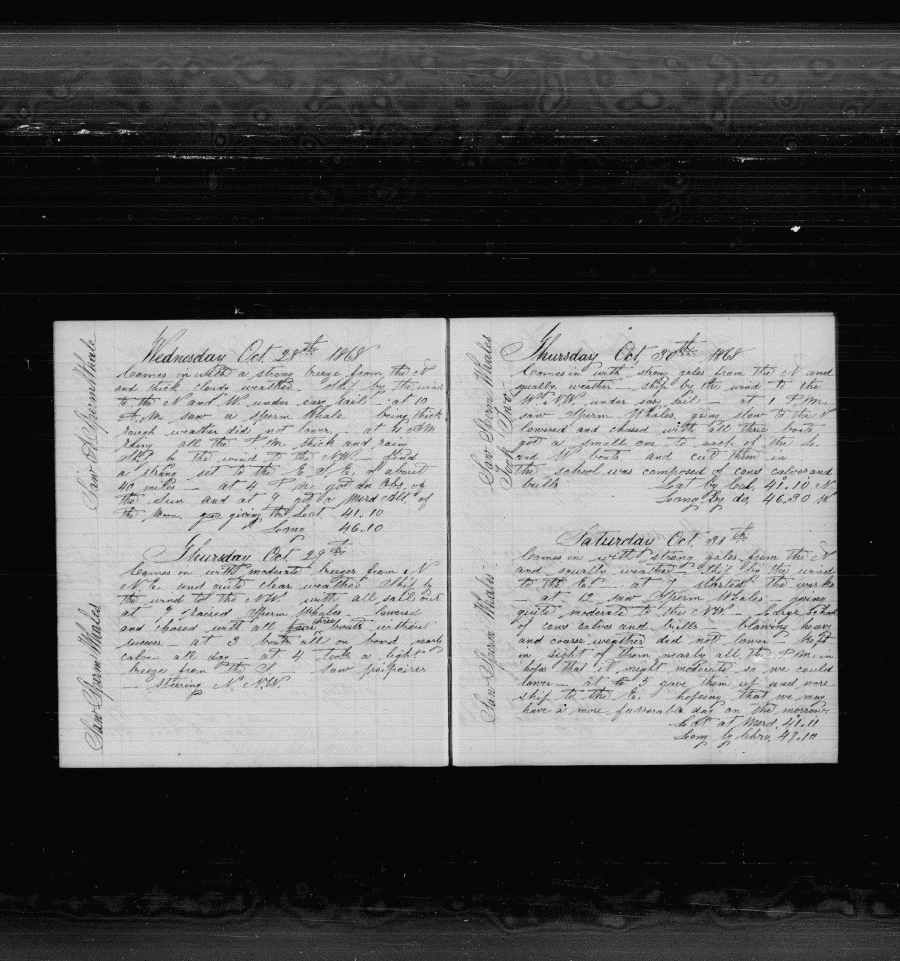 Saw A Sperm Whale
Wednesday Oct. 28th 1868
Comes in with a strong breeze from the N
and thick cloudy weather ship by the wind
to the N and W under easy sail at 10
A.M. saw a Sperm Whale being thick
rough weather did not lower at 11 AM
all the P M thick and rain
Ship by the wind to the NW find
a strong set to the E S E of about
40 miles at 4 P M got do Obs. of
the Sun and at 9 got a Merd Alt of
the Moon. giving the Lat 41.10
Long 46.10
Thursday Oct 29th
Comes in with moderate breezes from N
N E. and quite clear weather Ship by
the wind to the NW with all sail out
at raised Sperm Whales lowered
and chased with all three boats without
success at 3 boats all on board nearly
calm all day at 4 took a light
breeze from the S saw
steering N. NW
Saw Sperm Whales
Saw Sperm Whales
Took Two
Thursday Oct 30th 1868
Comes in with strong gales from the N and
squally weather ship by the wind to the
W N W under easy sail at 1 P M
saw Sperm Whales going slow to the N
lowered and chased with all three boats
got a small one to each of the L.
and W boats and cut them in
the school was composed of cows calves and
bulls Lat by Cd. 41.10 N
Long by do 46.30 W
Saturday Oct. 31st
Comes in with strong gales from the N
and squally weather Ship by the wind
to the E at 7 started the works
at 12 saw Sperm Whales going
quite moderate to the NW Large School
of cows calves and bulls blowing heavy
and coarse weather did not lower kept
in sight of them nearly all the P M in
hopes that it might moderate so we could
lower at 5 gave them up and wore
ship to the E. hopeing that we may
have a more favorable day on the morrow
Lat at Merd 41.11
Long by Chro. 47.10
Saw Sperm Whales